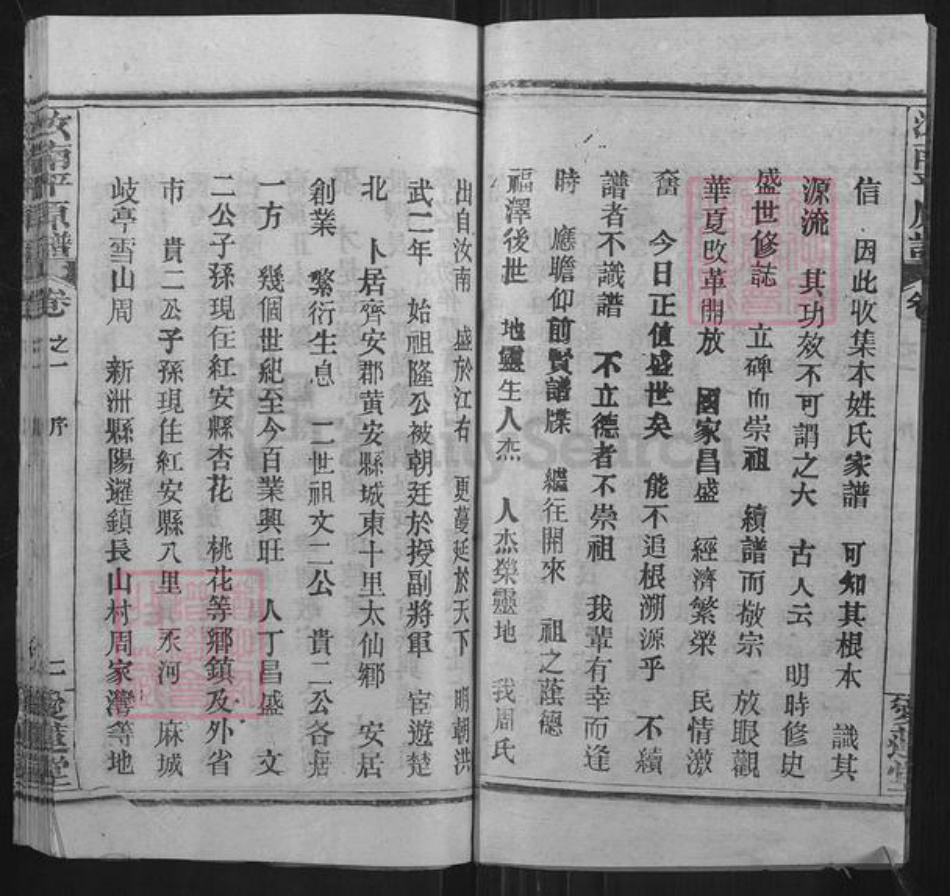 信　因此收集本姓氏家譜　可知其根本　識其
源流　其功效不可謂之大　古人云　明時修史
盛世修誌　立碑而崇祖　續譜而敬宗　放眼觀
華夏改革開放　國家昌盛　經濟繁榮　民情激
奮　今日正值盛世矣　能不追根溯源乎　不續
譜者不識譜　不立德者不崇祖　我輩有幸而逢
時　應瞻仰前賢譜牒　繼往開來　祖之蔭德
福澤後世　地靈生人杰　人杰榮靈地　我周氏
出自汝南　盛於江右　更蔓延於天下　明朝洪
武二年　始祖隆公被朝廷於授副將軍　宦遊楚
北　卜居齊安郡黃安縣城東十里太仙鄉　安居
創業　繁衍生息　二世祖文二公　貴二公各居
一方　幾個世紀至今百業興旺　人丁昌盛　文
二公子孫現住紅安縣杏花　桃花等鄉鎮及外省
市　貴二公子孫現住紅安縣八里　永河　麻城
岐亭雪山周　新洲縣陽邏鎮長山村周家灣等地
汝南平原譜　卷之一　序　二　愛蓮堂